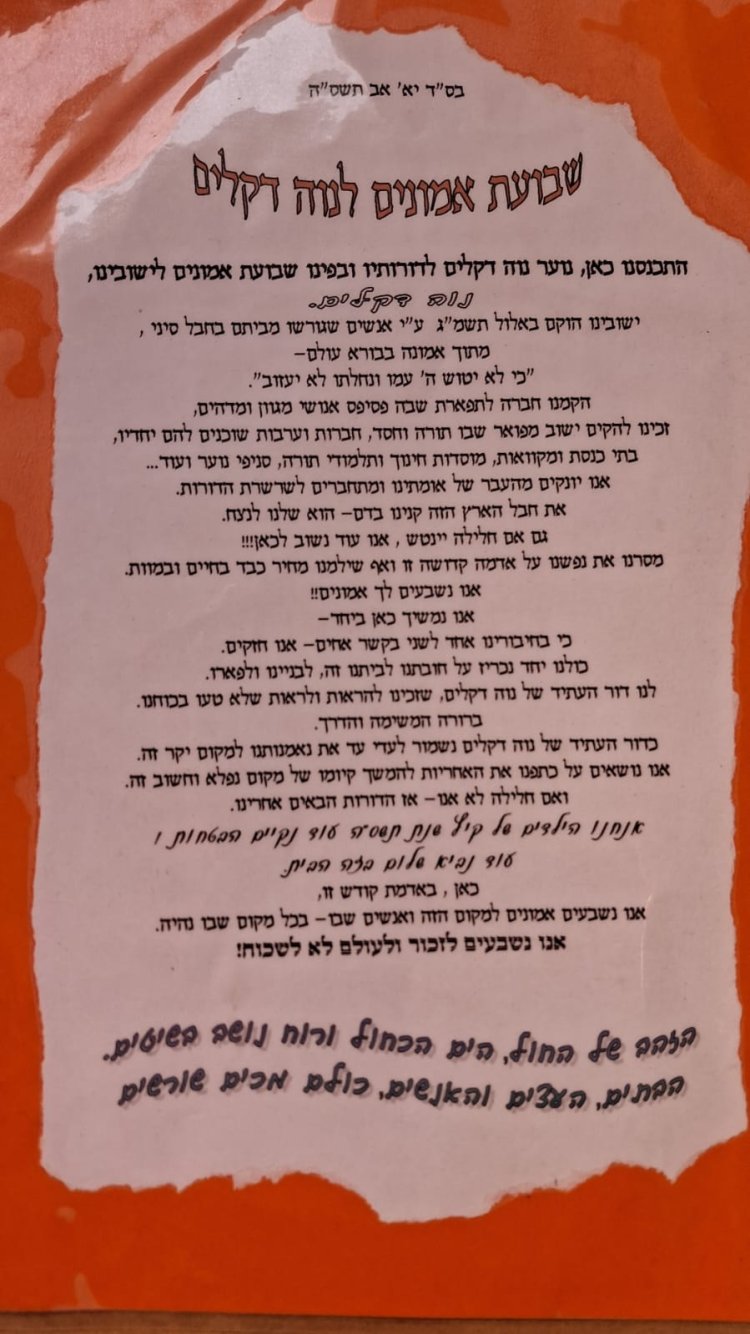 בס"ד יא' אב תשס"ה
שבועת אמונים לנוה דקלים
התכנסנו כאן, נוער נוה דקלים לדורותיו ובפינו שבועת אמונים לישובינו,
נוה דקלים.
ישובינו הוקם באלול תשמ"ג ע"י אנשים שגורשו מביתם בחבל סיני ,
מתוך אמונה בבורא עולם–
"כי לא יטוש ה' עמו ונחלתו לא יעזוב".
הקמנו חברה לתפארת שבה פסיפס אנושי מגוון ומדהים,
זכינו להקים ישוב מפואר שבו תורה וחסד, חברות וערבות שוכנים להם יחדיו,
בתי כנסת ומקוואות, מוסדות חינוך ותלמודי תורה, סניפי נוער ועוד...
אנו יונקים מהעבר של אומתינו ומתחברים לשרשרת הדורות.
את חבל הארץ הזה קנינו בדם– הוא שלנו לנצח.
גם אם חלילה יינטש , אנו עוד נשוב לכאן!!!
מסרנו את נפשנו על אדמה קדושה זו ואף שילמנו מחיר כבד בחיים ובמוות.
אנו נשבעים לך אמונים!!
אנו נמשיך כאן ביחד–
כי בחיבורינו אחד לשני בקשר אחים– אנו חזקים.
כולנו יחד נכריז על חובתנו לביתנו זה, לבניינו ולפארו.
לנו דור העתיד של נוה דקלים, שזכינו להראות ולראות שלא טעו בכוחנו.
ברורה המשימה והדרך.
כדור העתיד של נוה דקלים נשמור לעדי עד את נאמנותנו למקום יקר זה.
אנו נושאים על כתפנו את האחריות להמשך קיומו של מקום נפלא וחשוב זה.
ואם חלילה לא אנו– אז הדורות הבאים אחרינו.
אנחנו הילדים של קיץ שנת תשס"ה עוד נקיים הבטחות !
עוד נביא שלום בזה הבית.
כאן , באדמת קודש זו,
אנו נשבעים אמונים למקום הזה ואנשים שבו– בכל מקום שבו נהיה.
אנו נשבעים לזכור ולעולם לא לשכוח!
הזהב של החול, הים הכחול ורוח נושב בשיטים.
הבתים, העצים והאנשים, כולם מכים שורשים